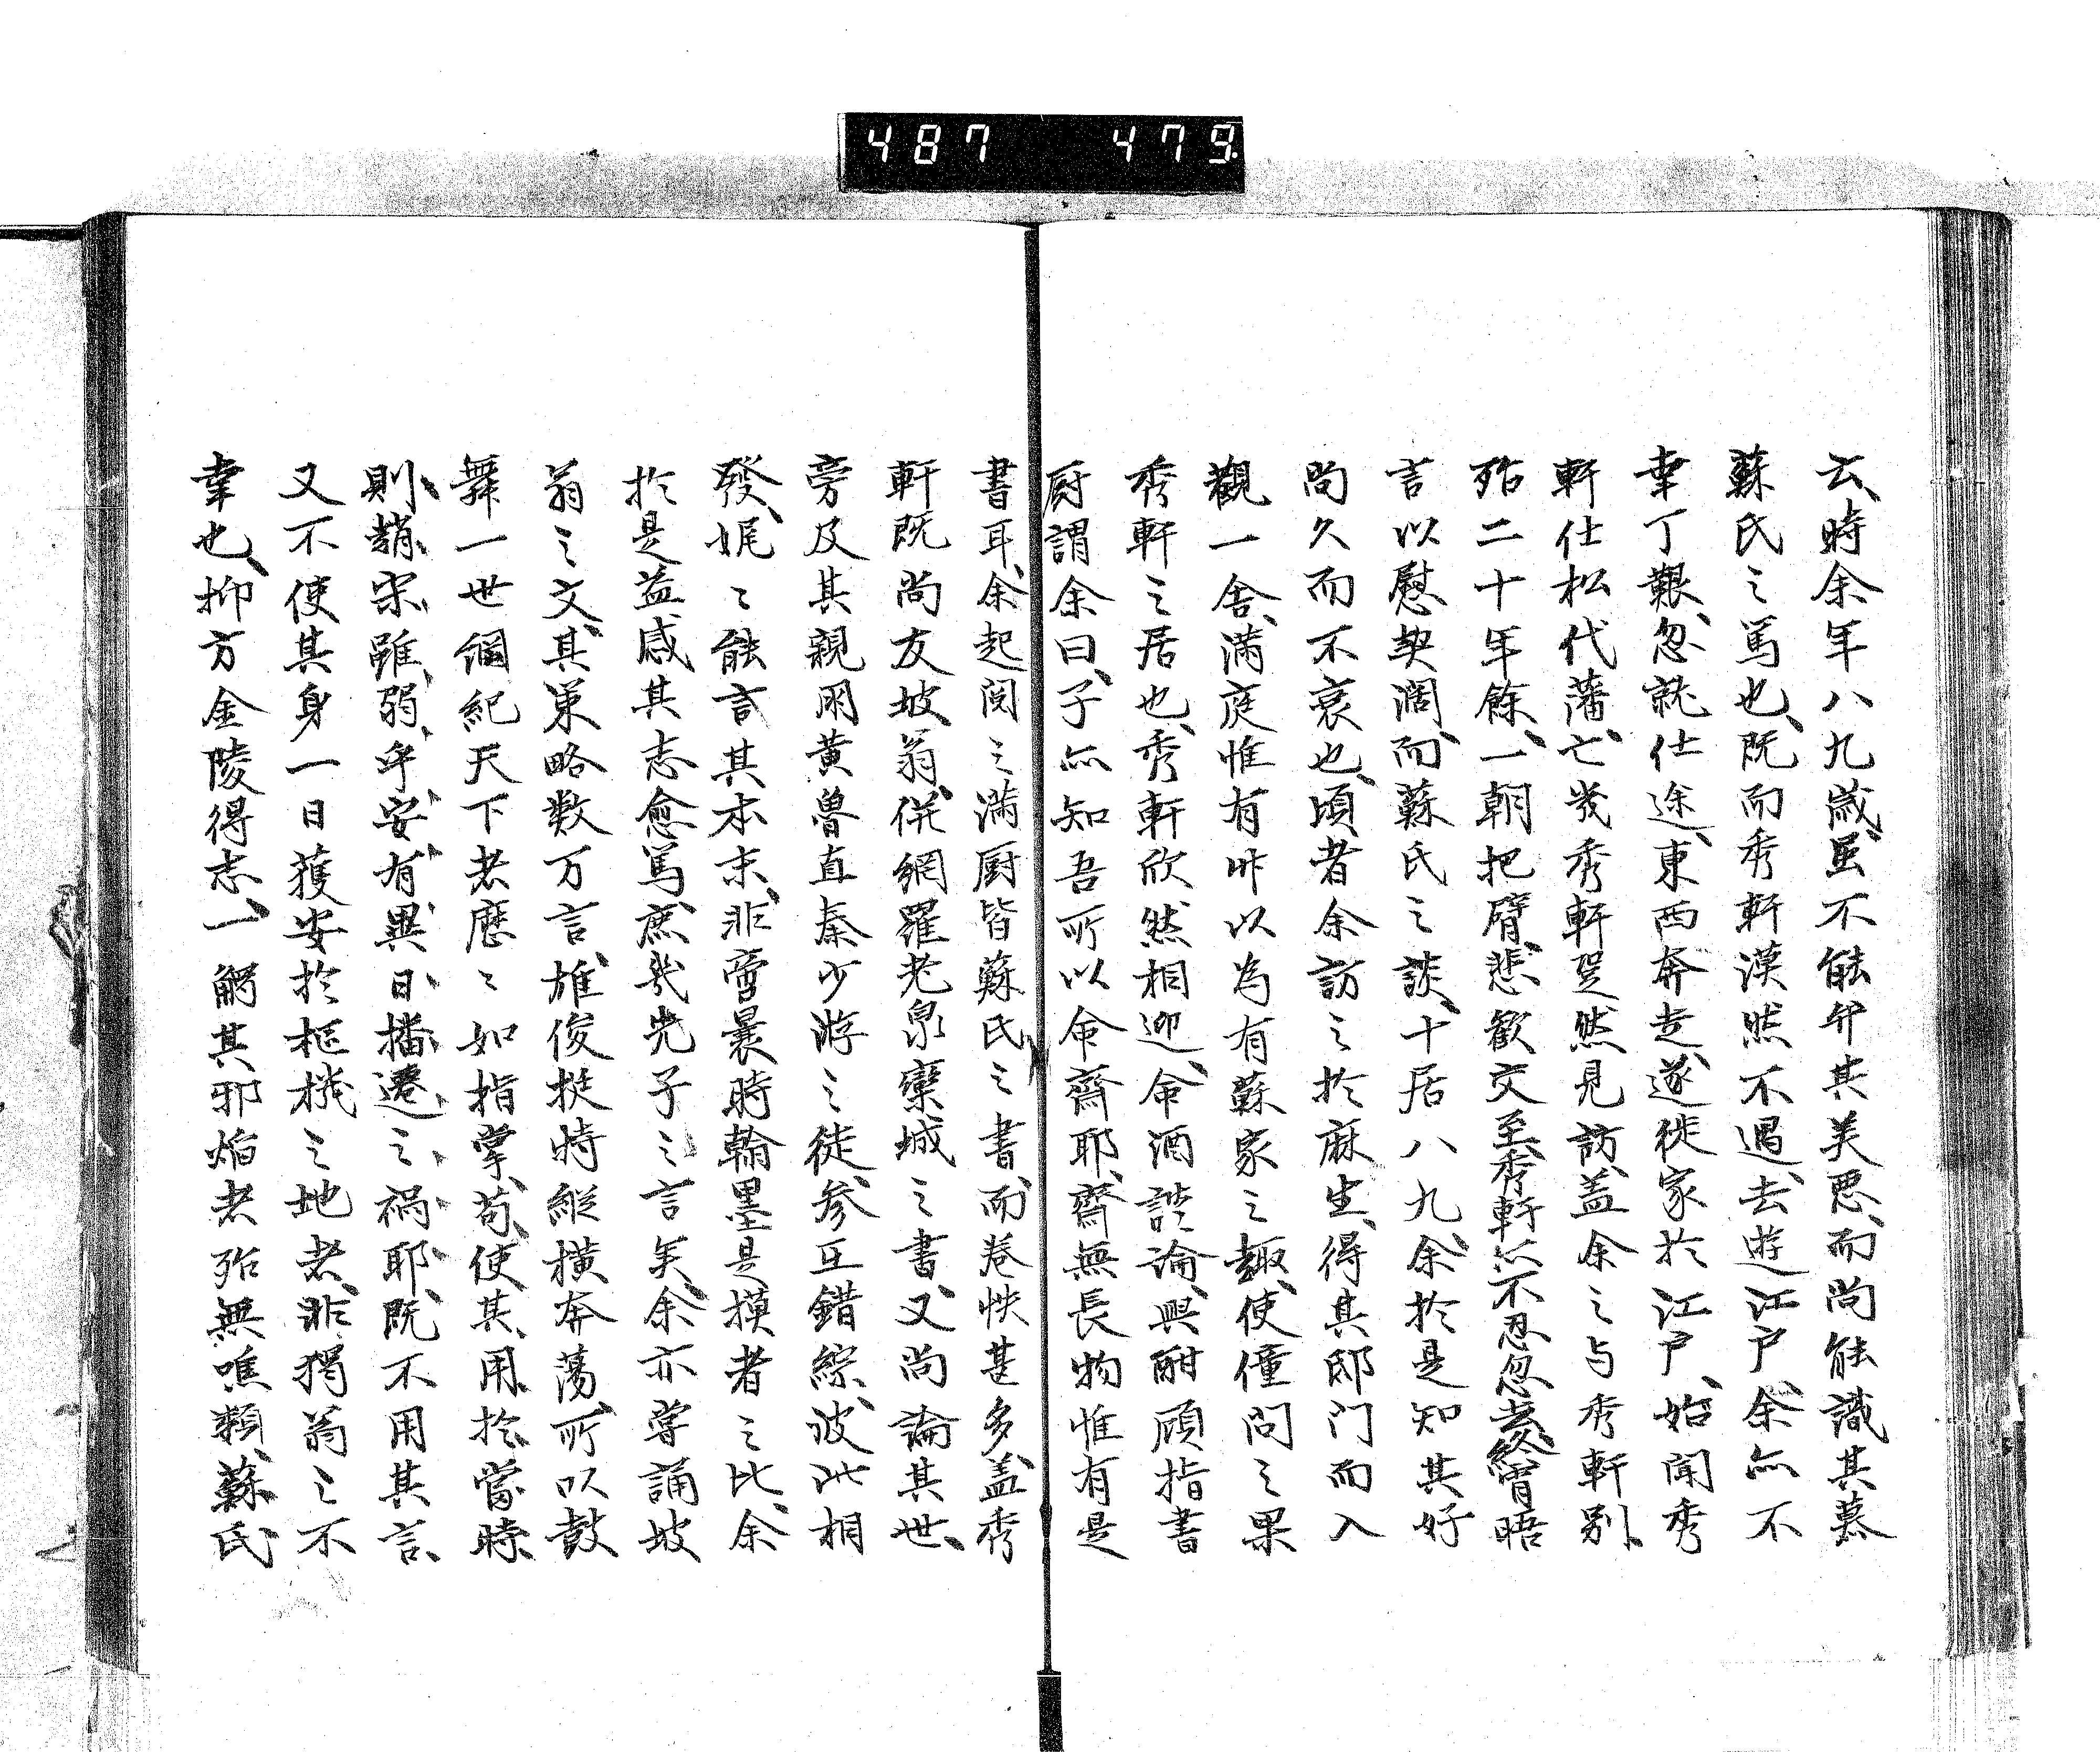 487 479
云、時余年八九歳、虽不能弁其美悪、而尚能識其慕
蘇氏之篤也、既而秀軒漠然不遇、去遊江戸、余亦不
幸丁艱、忽就仕途、東西奔走、遂徙家於江戸、始聞秀
軒仕松代藩、亡幾秀軒跫然見訪、盖余之与秀軒別、
殆二十年餘、一朝把臂、悲歓交至、秀軒亦不忍忽去、終宵晤
言以慰契濶、而蘇氏之談、十居八九、余於是知其好
尚久而不衰也、頃者余訪之於麻生、得其邸门而入
觀一舎、満庭惟有竹以為有蘇家之趣、使僮問之果
秀軒之居也、秀軒欣然相迎、命酒談論、興酣顧指書
厨謂余曰、子亦知吾所以命齋耶、齋無長物惟有是
書耳、余起閲之満厨皆蘇氏之書、而巻帙甚多、盖秀
軒既尚友坡翁、併網羅老泉欒城之書、又尚論其世、
旁及其親朋黄魯直秦少游之徒、参互錯綜、彼此相
發、娓〻能言其本末、非啻曩時翰墨是摸者之比、余
於是益感其志愈篤、庶幾先子之言矣、余亦嘗誦坡
翁之文、其策略数万言、雄俊挺特縦横奔蕩、所以鼓
舞一世綱紀天下者歴〻如指掌、苟使其用於當時
則趙宋雖弱、乎安有異日播遷之禍耶、既不用其言
又不使其身一日獲安於枢機之地者、非獨翁之不
幸也、抑方金陵得志、一觸其邪焔者殆無噍類、蘇氏